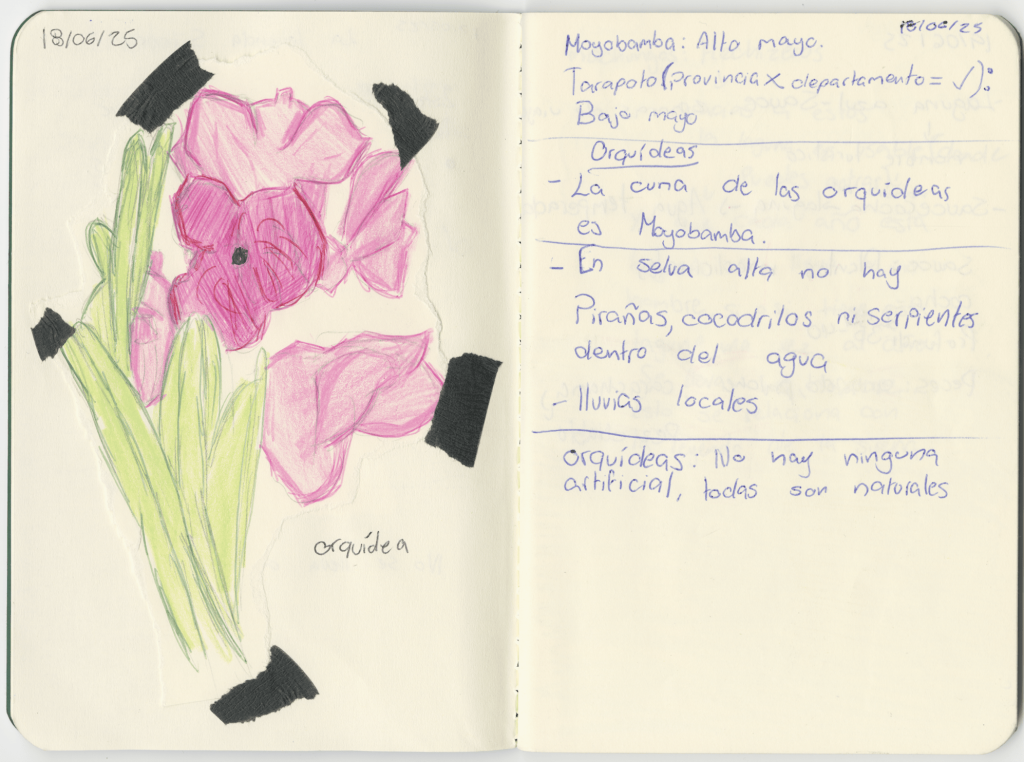 18/06/25
orquídea
18/06/25
Moyobamba: Alto mayo.
Tarapoto (Provincia x departamento = ✓):
Bajo mayo
Orquídeas
- La cuna de las orquídeas
es Moyobamba.
- En selva alta no hay
Pirañas, cocodrilos ni serpientes
dentro del agua
- lluvias locales
orquídeas: No hay ninguna
artificial, todas son naturales